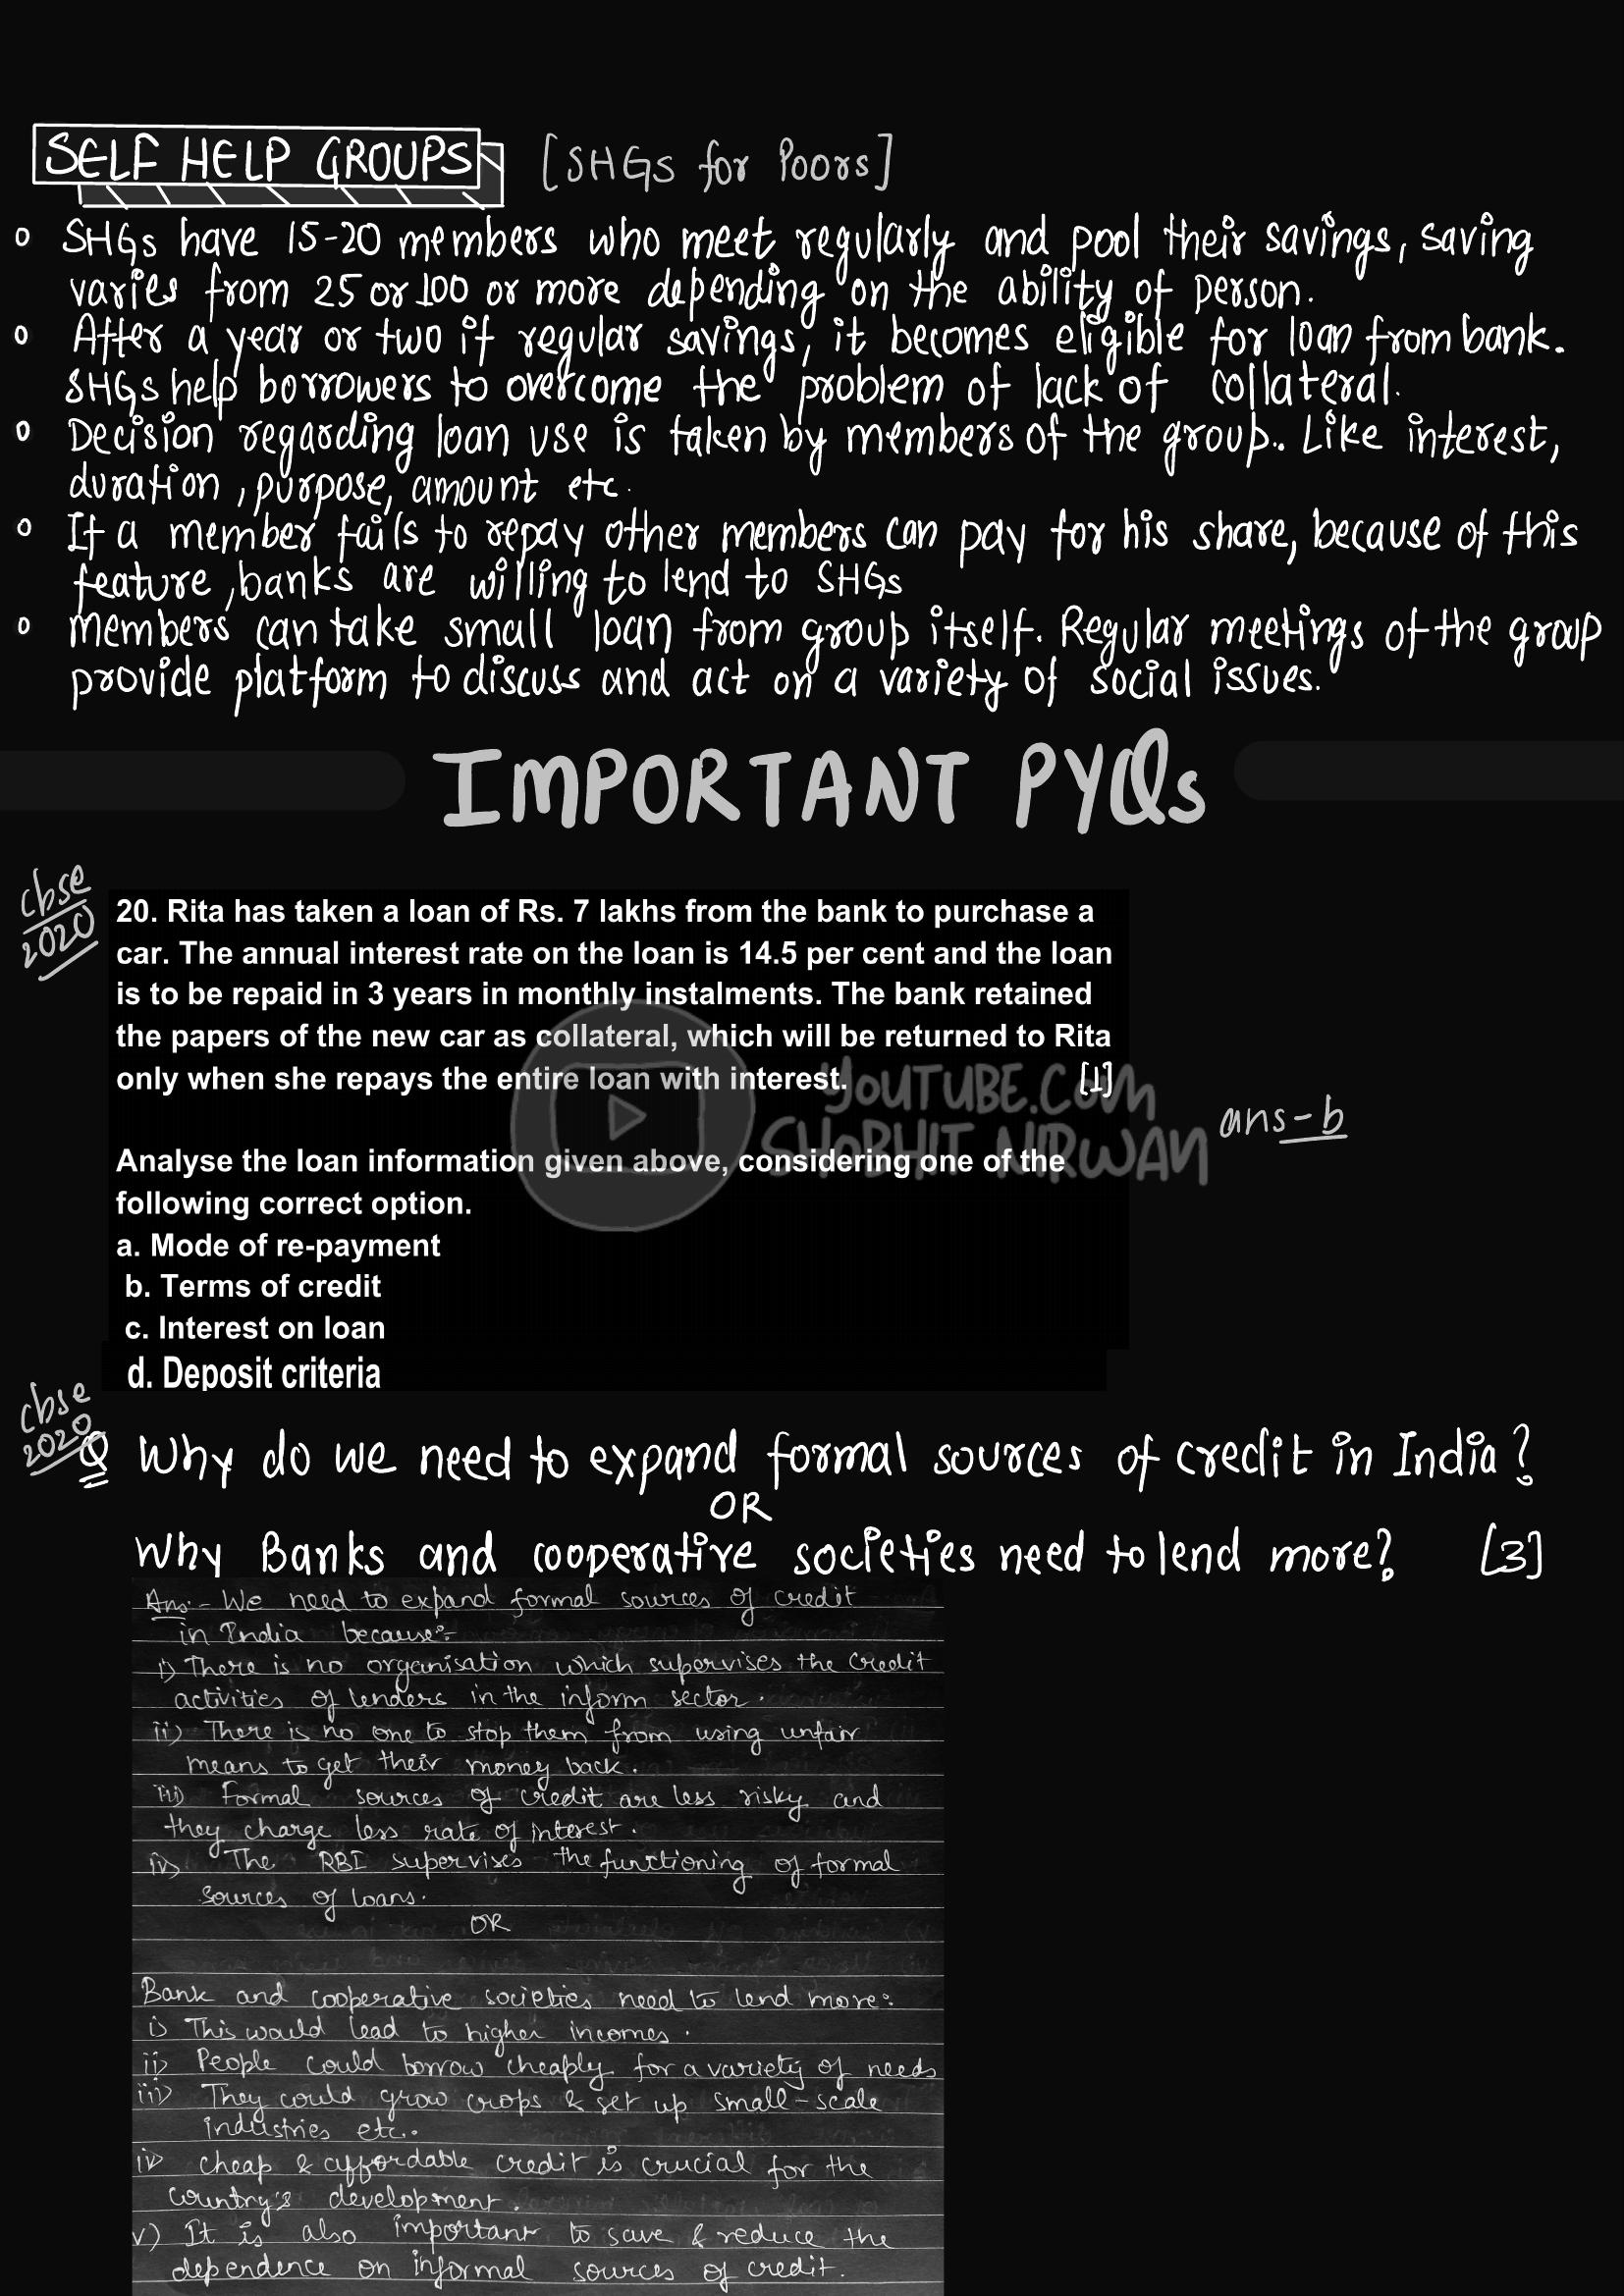 SELF HELP GROUPS [SHGs for Poors]
SHGs have 15-20 members who meet regularly and pool their savings, saving
varies from 25 or 100 or more depending on the ability of person.
After a year or two if regular savings, it becomes eligible for loan from bank.
SHGs help borrowers to overcome the problem of lack of collateral.
Decision regarding loan use is taken by members of the group.. Like interest,
duration, purpose, amount etc.
If a member fails to repay other members can pay for his share, because of this
feature, banks are willing to lend to SHGs
members can take small loan from group itself. Regular meetings of the group
provide platform to discuss and act on a variety of social issues.
IMPORTANT PYQs
cbse
2020
20. Rita has taken a loan of Rs. 7 lakhs from the bank to purchase a
car. The annual interest rate on the loan is 14.5 per cent and the loan
is to be repaid in 3 years in monthly instalments. The bank retained
the papers of the new car as collateral, which will be returned to Rita
only when she repays the entire loan with interest. [1]
YOUTUBE.COM
SHOBHIT NIRWAN
ans-b
Analyse the loan information given above, considering one of the
following correct option.
a. Mode of re-payment
b. Terms of credit
c. Interest on loan
d. Deposit criteria
cbse
2020
Q Why do we need to expand formal sources of credit in India?
OR
Why Banks and cooperative societies need to lend more? [3]
Ans:- We need to expand formal sources of credit
in India because:-
i) There is no organisation which supervises the credit
activities of lenders in the inform sector.
ii) There is no one to stop them from using unfair
means to get their money back.
iii) Formal sources of credit are less risky and
they charge less rate of interest.
iv) The RBI supervises the functioning of formal
sources of loans.
OR
Bank and cooperative societies need to lend more:
i) This would lead to higher incomes.
ii) People could borrow cheaply for a variety of needs
iii) They could grow crops & set up small-scale
industries etc..
iv) cheap & affordable credit is crucial for the
country's development.
v) It is also important to save & reduce the
dependence on informal sources of credit.